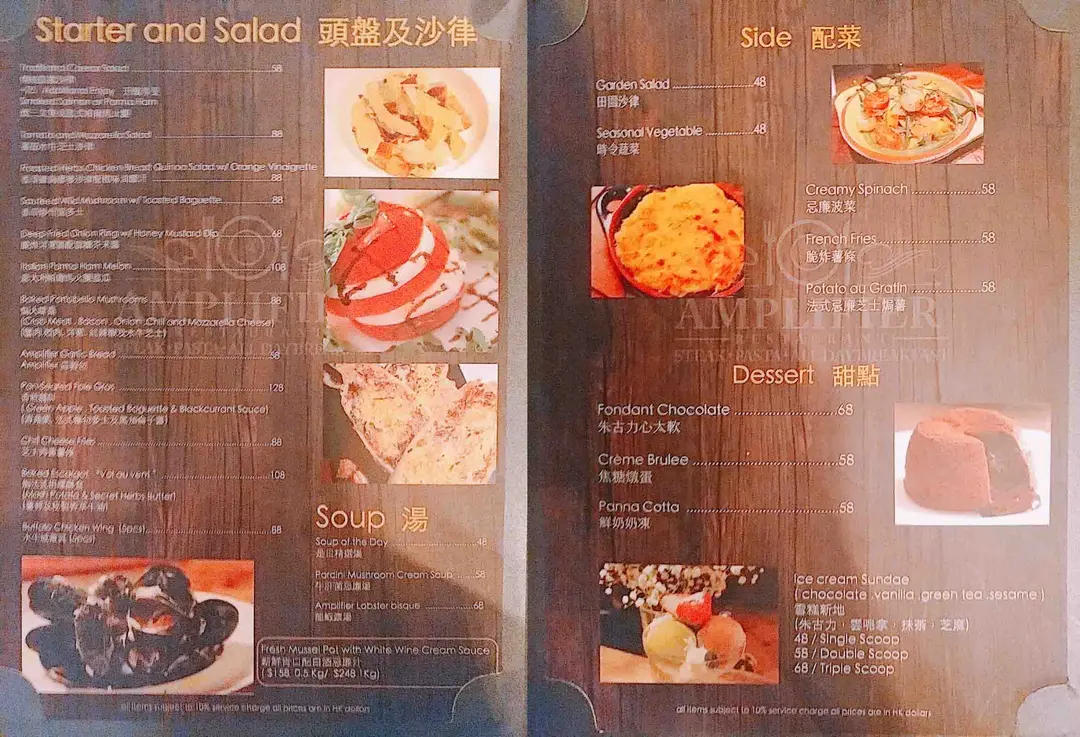 Starter and Salad 頭盤及沙律
Traditional Caesar Salad 58
Additional Enjoy
Smoked Salmon or Parma Ham
Tomato and Mozzarella Salad 88
蕃茄水牛芝士沙律
Roasted Herbs Chicken Bread Quinoa Salad w/ Orange Vinaigrette
88
Sauteed Wild Mushroom w/ Toasted Baguette 88
Deep Fried Onion Ring w/ Honey Mustard Dip 68
Italian Parma Ham Melon 108
Baked Portobello Mushrooms 88
(Crisp Meat . Bacon . Onion .Chili and Mozzarella Cheese)
Amplifier Garlic Bread 58
Amplifier
Pan-Seared Foie Gras 128
香煎鵝肝
( Green Apple . Toasted Baguette & Blackcurrant Sauce)
Chili Cheese Fries 88
Baked Escargot "Vol au vent" 108
(Mash Potato & Secret Herbs Butter)
Buffalo Chicken Wing (5pcs) 88
水牛城雞翼 (5pcs)
Soup 湯
Soup of the Day 48
是日精選湯
Porcini Mushroom Cream Soup 58
牛肝菌忌廉湯
Amplifier Lobster bisque 68
龍蝦濃湯
Fresh Mussel Pot with White Wine Cream Sauce
新鮮青口配白酒忌廉汁
( $158 0.5 Kg/ $248 1Kg)
all items subject to 10% service charge all prices are in HK dollars
Side 配菜
Garden Salad 48
田園沙律
Seasonal Vegetable 48
時令蔬菜
Creamy Spinach 58
忌廉波菜
French Fries 58
脆炸薯條
Potato au Gratin 58
法式忌廉芝士焗薯
AMPLIFIER
RESTAURANT
STEAK·PASTA·ALL DAY BREAKFAST
Dessert 甜點
Fondant Chocolate 68
朱古力心太軟
Crème Brulee 58
焦糖燉蛋
Panna Cotta 58
鮮奶奶凍
Ice cream Sundae
( chocolate .vanilla .green tea .sesame )
雪糕新地
(朱古力，雲呢拿，抹茶，芝麻)
48 / Single Scoop
58 / Double Scoop
68 / Triple Scoop
all items subject to 10% service charge all prices are in HK dollars